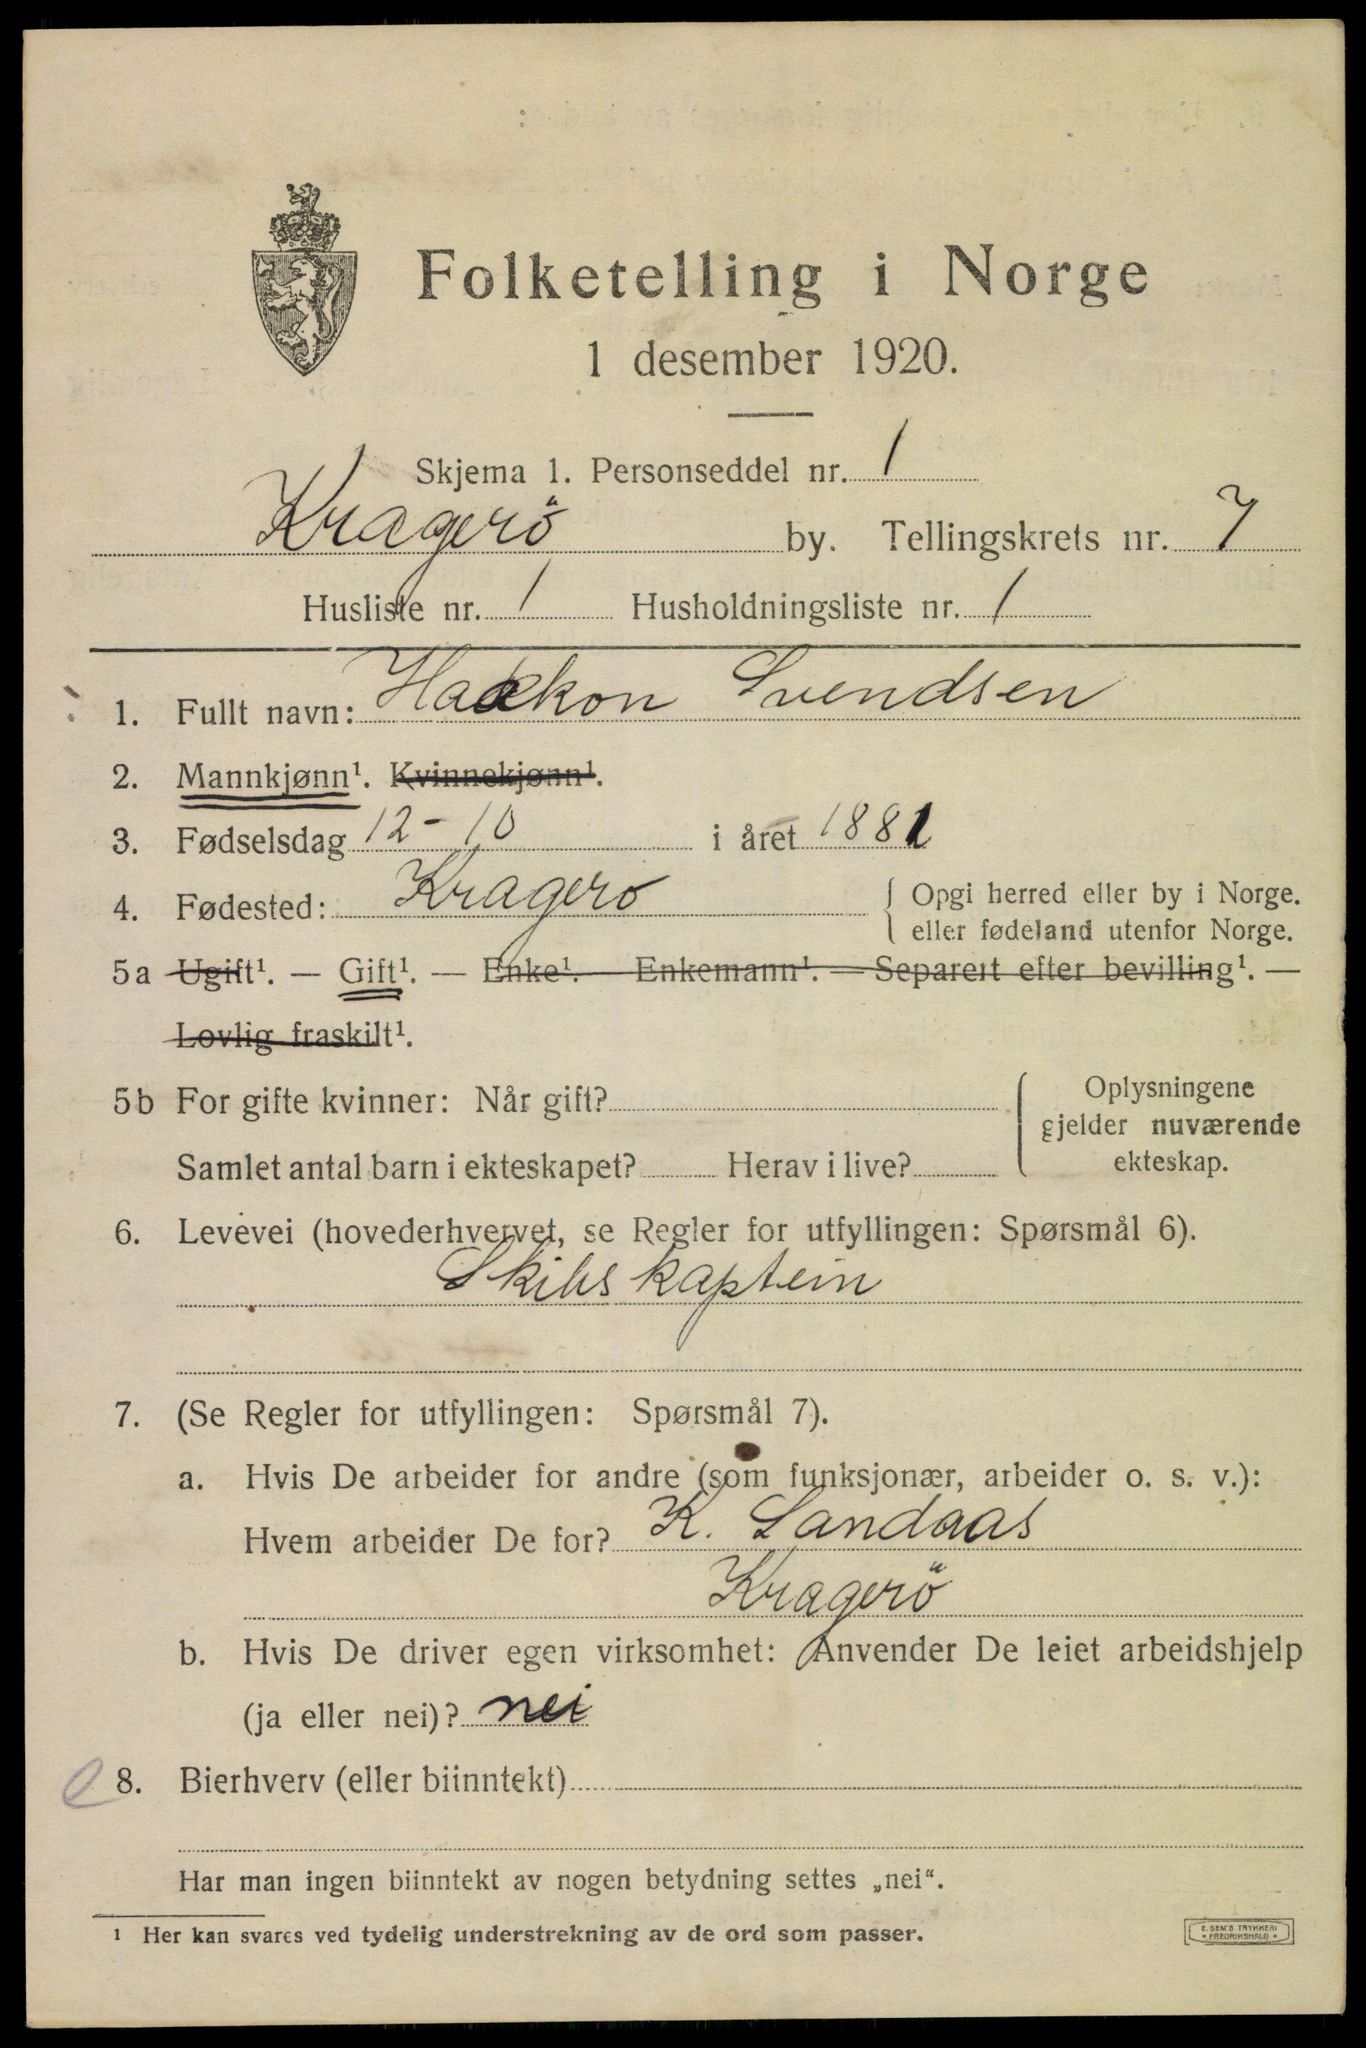 Folketelling i Norge
1 desember 1920.
Skjema 1. Personseddel nr. 1
Kragerö by. Tellingskrets nr. 7
Husliste nr. 1 Husholdningsliste nr. 1
1. Fullt navn: Haakon Svendsen
2. Mannkjønn¹. Kvinnekjønn¹.
3. Fødselsdag 12-10 i året 1881
4. Fødested: Kragerø { Opgi herred eller by i Norge.
eller fødeland utenfor Norge.
5a Ugift¹. — Gift¹. — Enke¹. — Enkemann¹. — Separert efter bevilling¹. —
Lovlig fraskilt¹.
5b For gifte kvinner: Når gift? Oplysningene
gjelder nuværende
Samlet antal barn i ekteskapet? Herav i live? ekteskap.
6. Levevei (hovederhvervet, se Regler for utfyllingen: Spørsmål 6).
Skibskaptein
7. (Se Regler for utfyllingen: Spørsmål 7).
a. Hvis De arbeider for andre (som funksjonær, arbeider o. s. v.):
Hvem arbeider De for? K. Sandaas
Kragerö
b. Hvis De driver egen virksomhet: Anvender De leiet arbeidshjelp
(ja eller nei)? nei
8. Bierhverv (eller biinntekt)
Har man ingen biinntekt av nogen betydning settes „nei“.
¹ Her kan svares ved tydelig understrekning av de ord som passer.
E. SEM'S TRYKKERI
• FREDRIKSHALD •